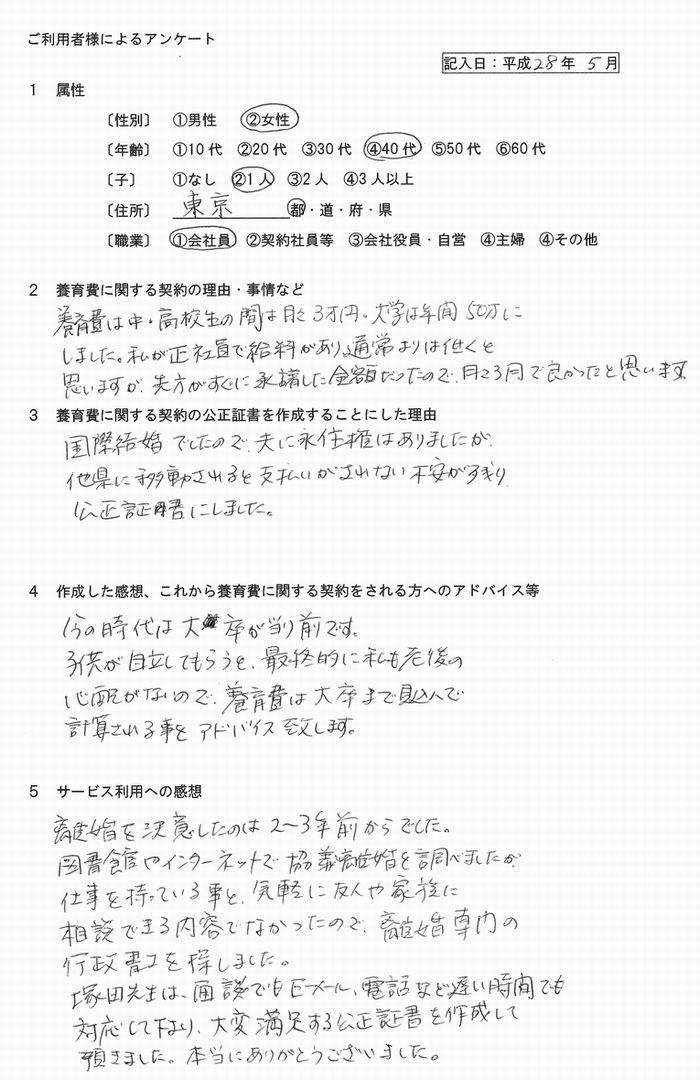 ご利用者様によるアンケート
記入日：平成28年 5月
1 属性
〔性別〕 ①男性 ②女性
〔年齢〕 ①10代 ②20代 ③30代 ④40代 ⑤50代 ⑥60代
〔子〕 ①なし ②1人 ③2人 ④3人以上
〔住所〕 東京 都・道・府・県
〔職業〕 ①会社員 ②契約社員等 ③会社役員・自営 ④主婦 ④その他
2 養育費に関する契約の理由・事情など
養育費は中・高校生の間は月々3万円。大学は年間50万に
しました。私が正社員で給料があり、通常よりは低くと
思いますが、先方がすぐに承諾した金額だったので、月々3万で良かったと思います。
3 養育費に関する契約の公正証書を作成することにした理由
国際結婚でしたので、夫に永住権はありましたが、
他県に移動されると支払いがされない不安がよぎり、
公正証書にしました。
4 作成した感想、これから養育費に関する契約をされる方へのアドバイス等
今の時代は大卒が当り前です。
子供が自立してもらうと、最終的に私も老後の
心配がないので、養育費は大卒まで見込んで
計算される事をアドバイス致します。
5 サービス利用への感想
離婚を決意したのは2～3年前からでした。
図書館やインターネットで協議離婚を調べましたが、
仕事を持っている事と、気軽に友人や家族に
相談できる内容でなかったので、離婚専門の
行政書士を探しました。
塚田先生は、面談でもEメール、電話など遅い時間でも
対応して下さり、大変満足する公正証書を作成して
頂きました。本当にありがとうございました。